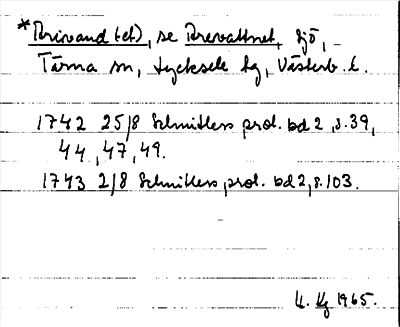 *Brivand (et), se Brevattnet, sjö, –
Tärna sn, Lycksele lg, Västerb. l.
1742 25/8 Schnitlers prot. bd 2, s. 39,
44, 47, 49.
1743 2/8 Schnitlers, prot. bd 2, s. 103.
1965.